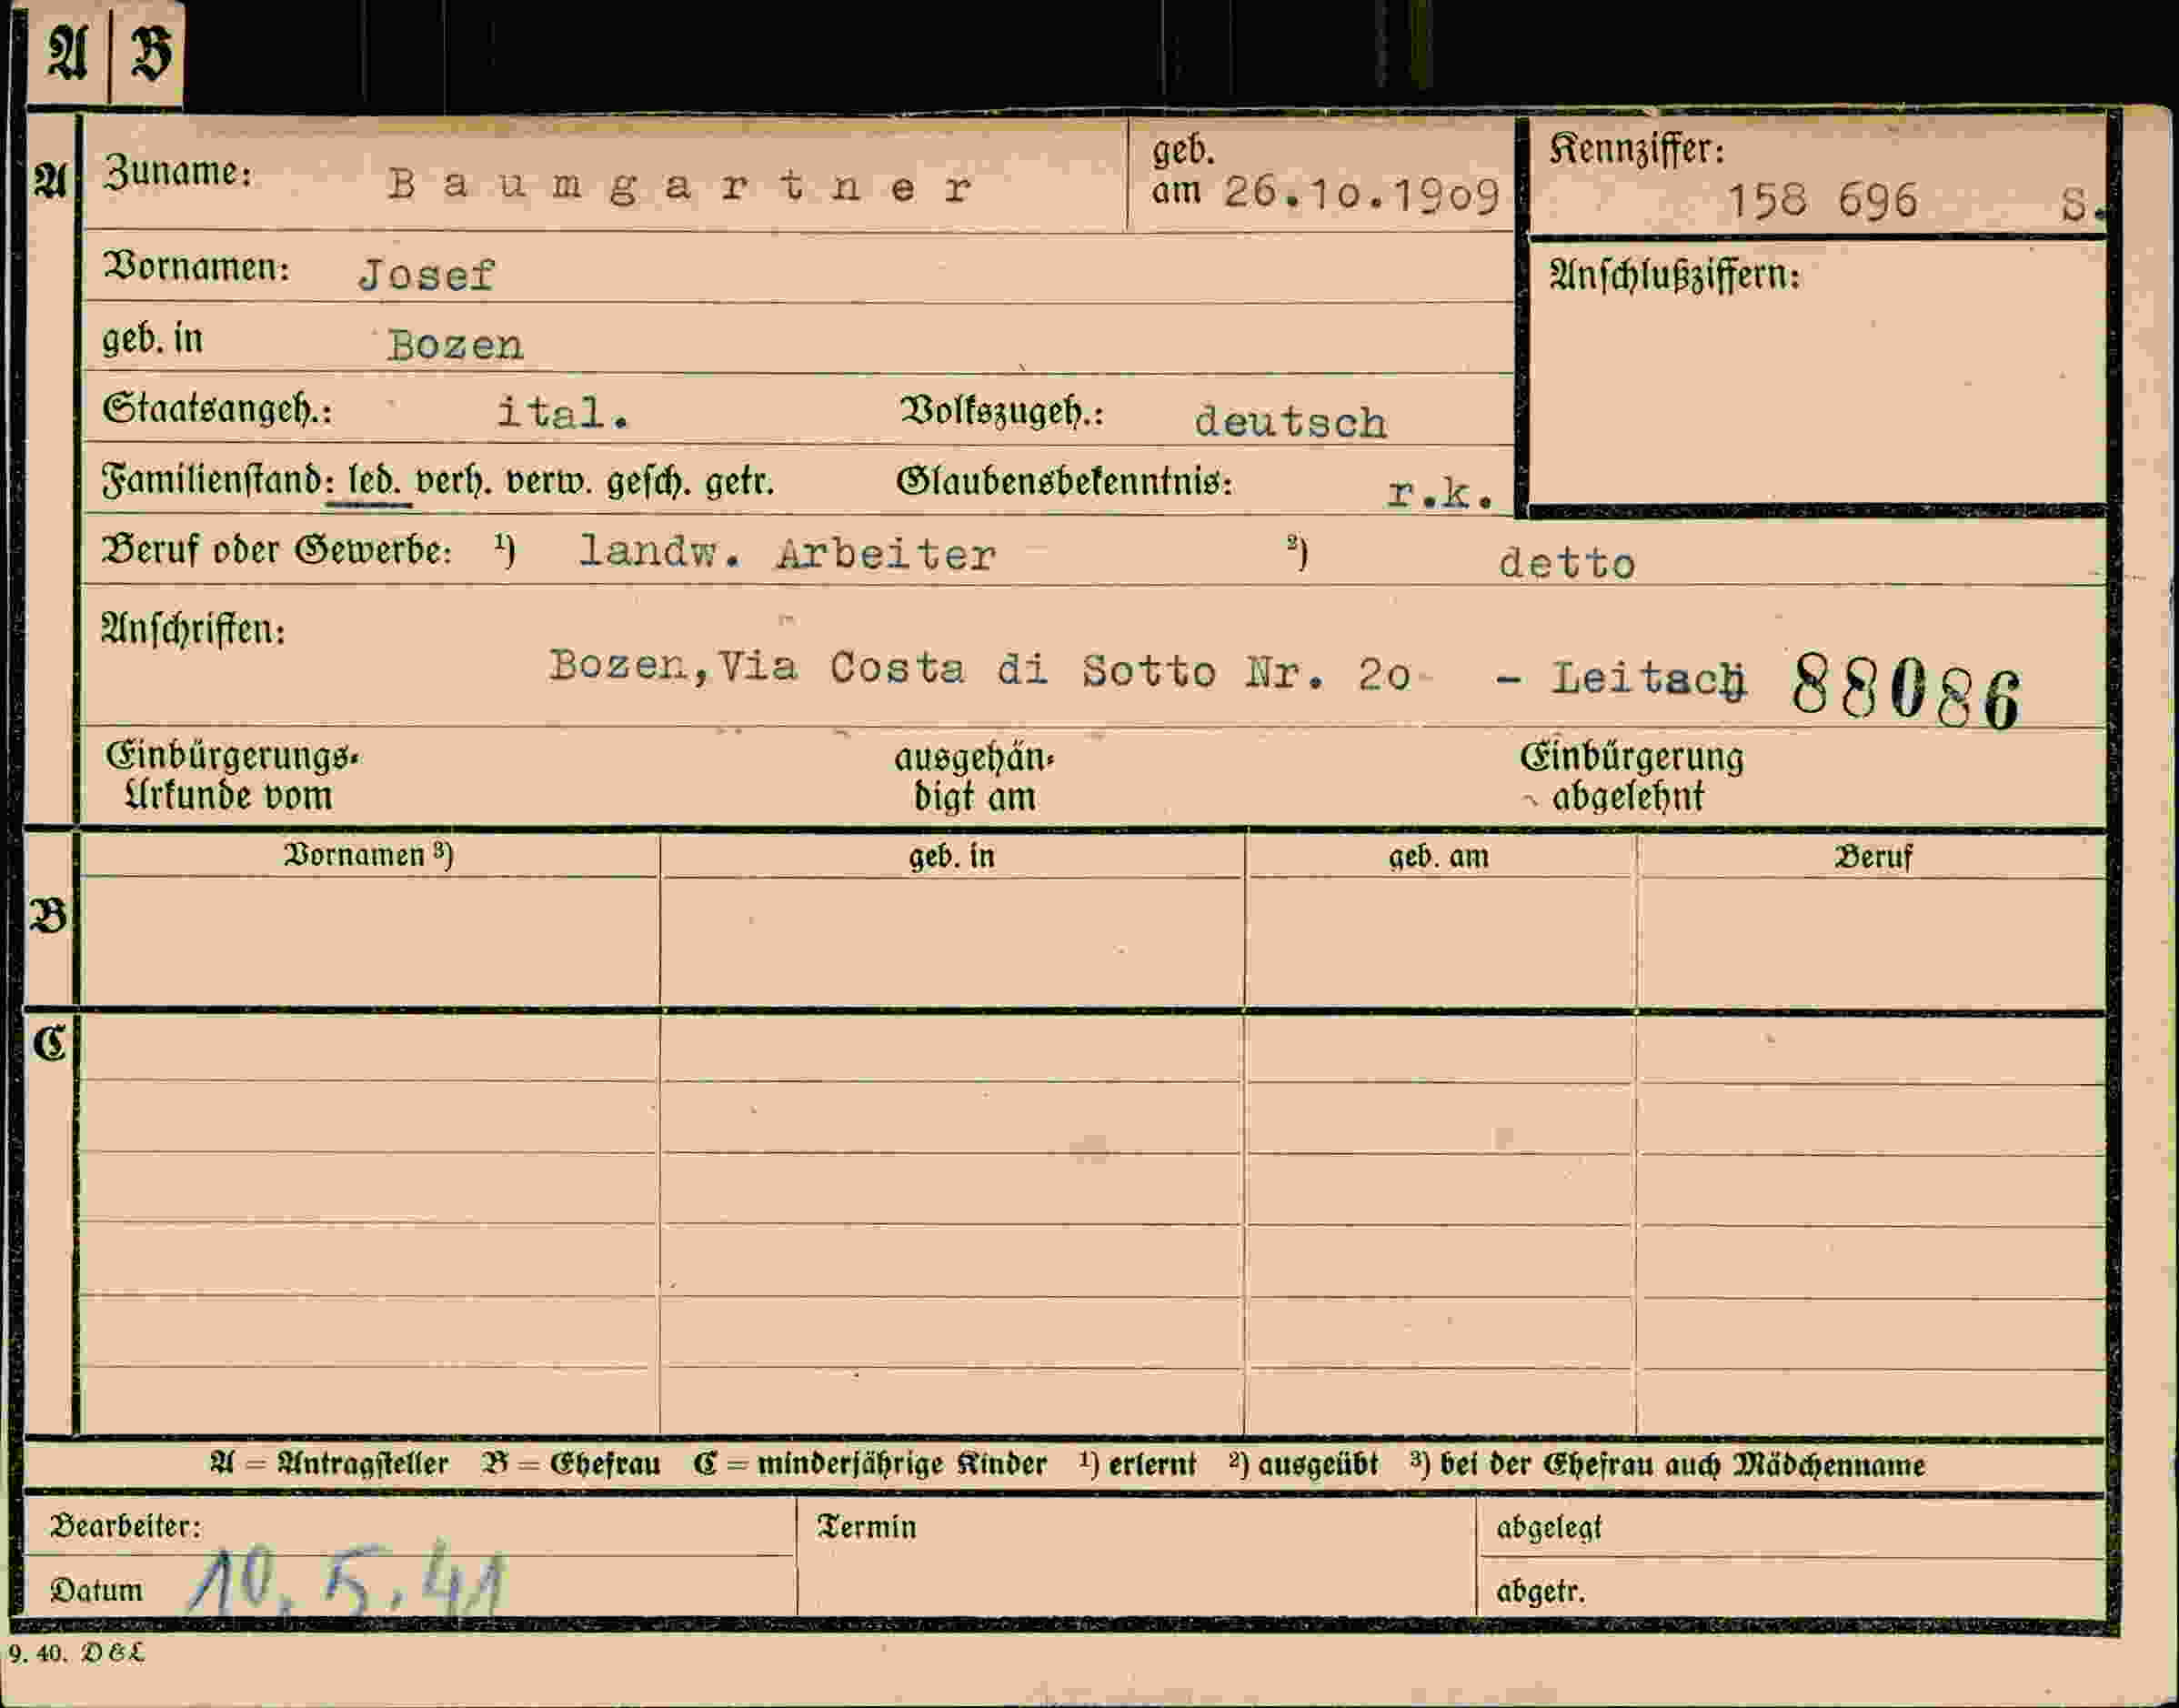 A | B
A Zuname: Baumgartner geb. am 26.10.1909 Kennziffer: 158 696 S.
Vornamen: Josef Anschlußziffern:
geb. in Bozen
Staatsangeh.: ital. Volkszugeh.: deutsch
Familienstand: led. verh. verw. gesch. getr. Glaubensbekenntnis: r.k.
Beruf oder Gewerbe: ¹) landw. Arbeiter ²) detto
Anschriften:
Bozen,Via Costa di Sotto Nr. 20 - Leitach 88086
Einbürgerungs- ausgehän- Einbürgerung
Urkunde vom digt am abgelehnt
Vornamen ³) geb. in geb. am Beruf
B
C
A = Antragsteller B = Ehefrau C = minderjährige Kinder ¹) erlernt ²) ausgeübt ³) bei der Ehefrau auch Mädchenname
Bearbeiter: Termin abgelegt
Datum 10. 5. 41 abgetr.
9. 40. D&L